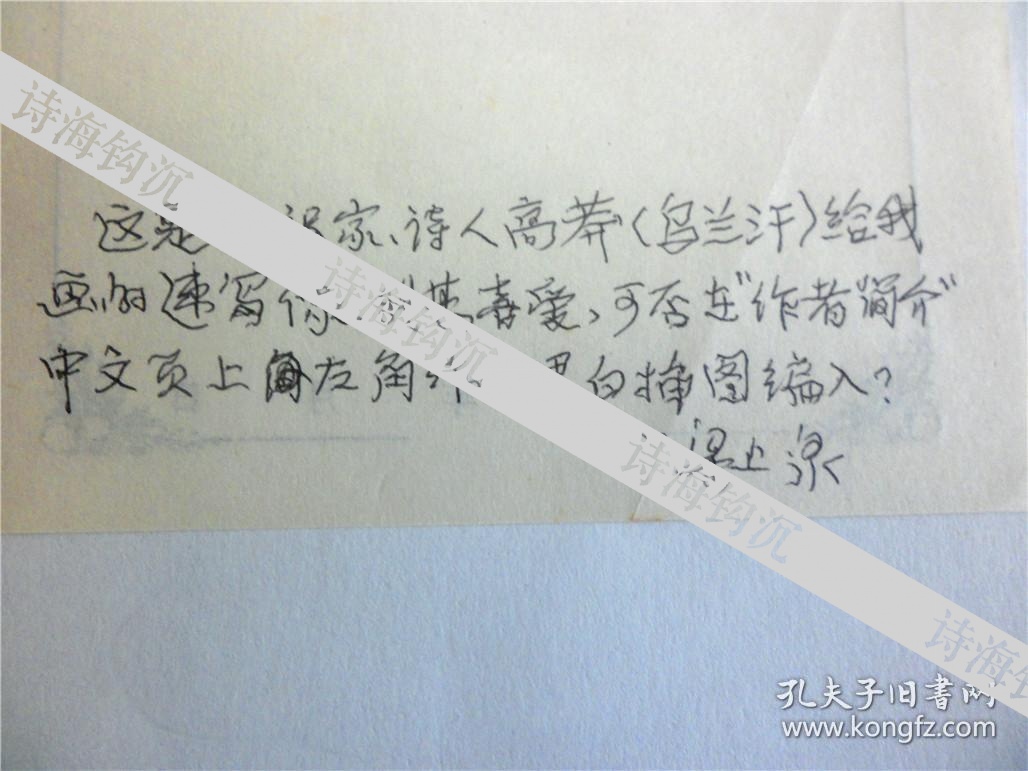 这是家、诗人高莽(乌兰汗)给我
画的速写像喜爱,可否在"作者简介"
中文页上左角白插图编入?
梁上泉
诗海钩沉
诗海钩沉
诗海钩沉
诗海钩
孔夫子旧书网
www.kongfz.com